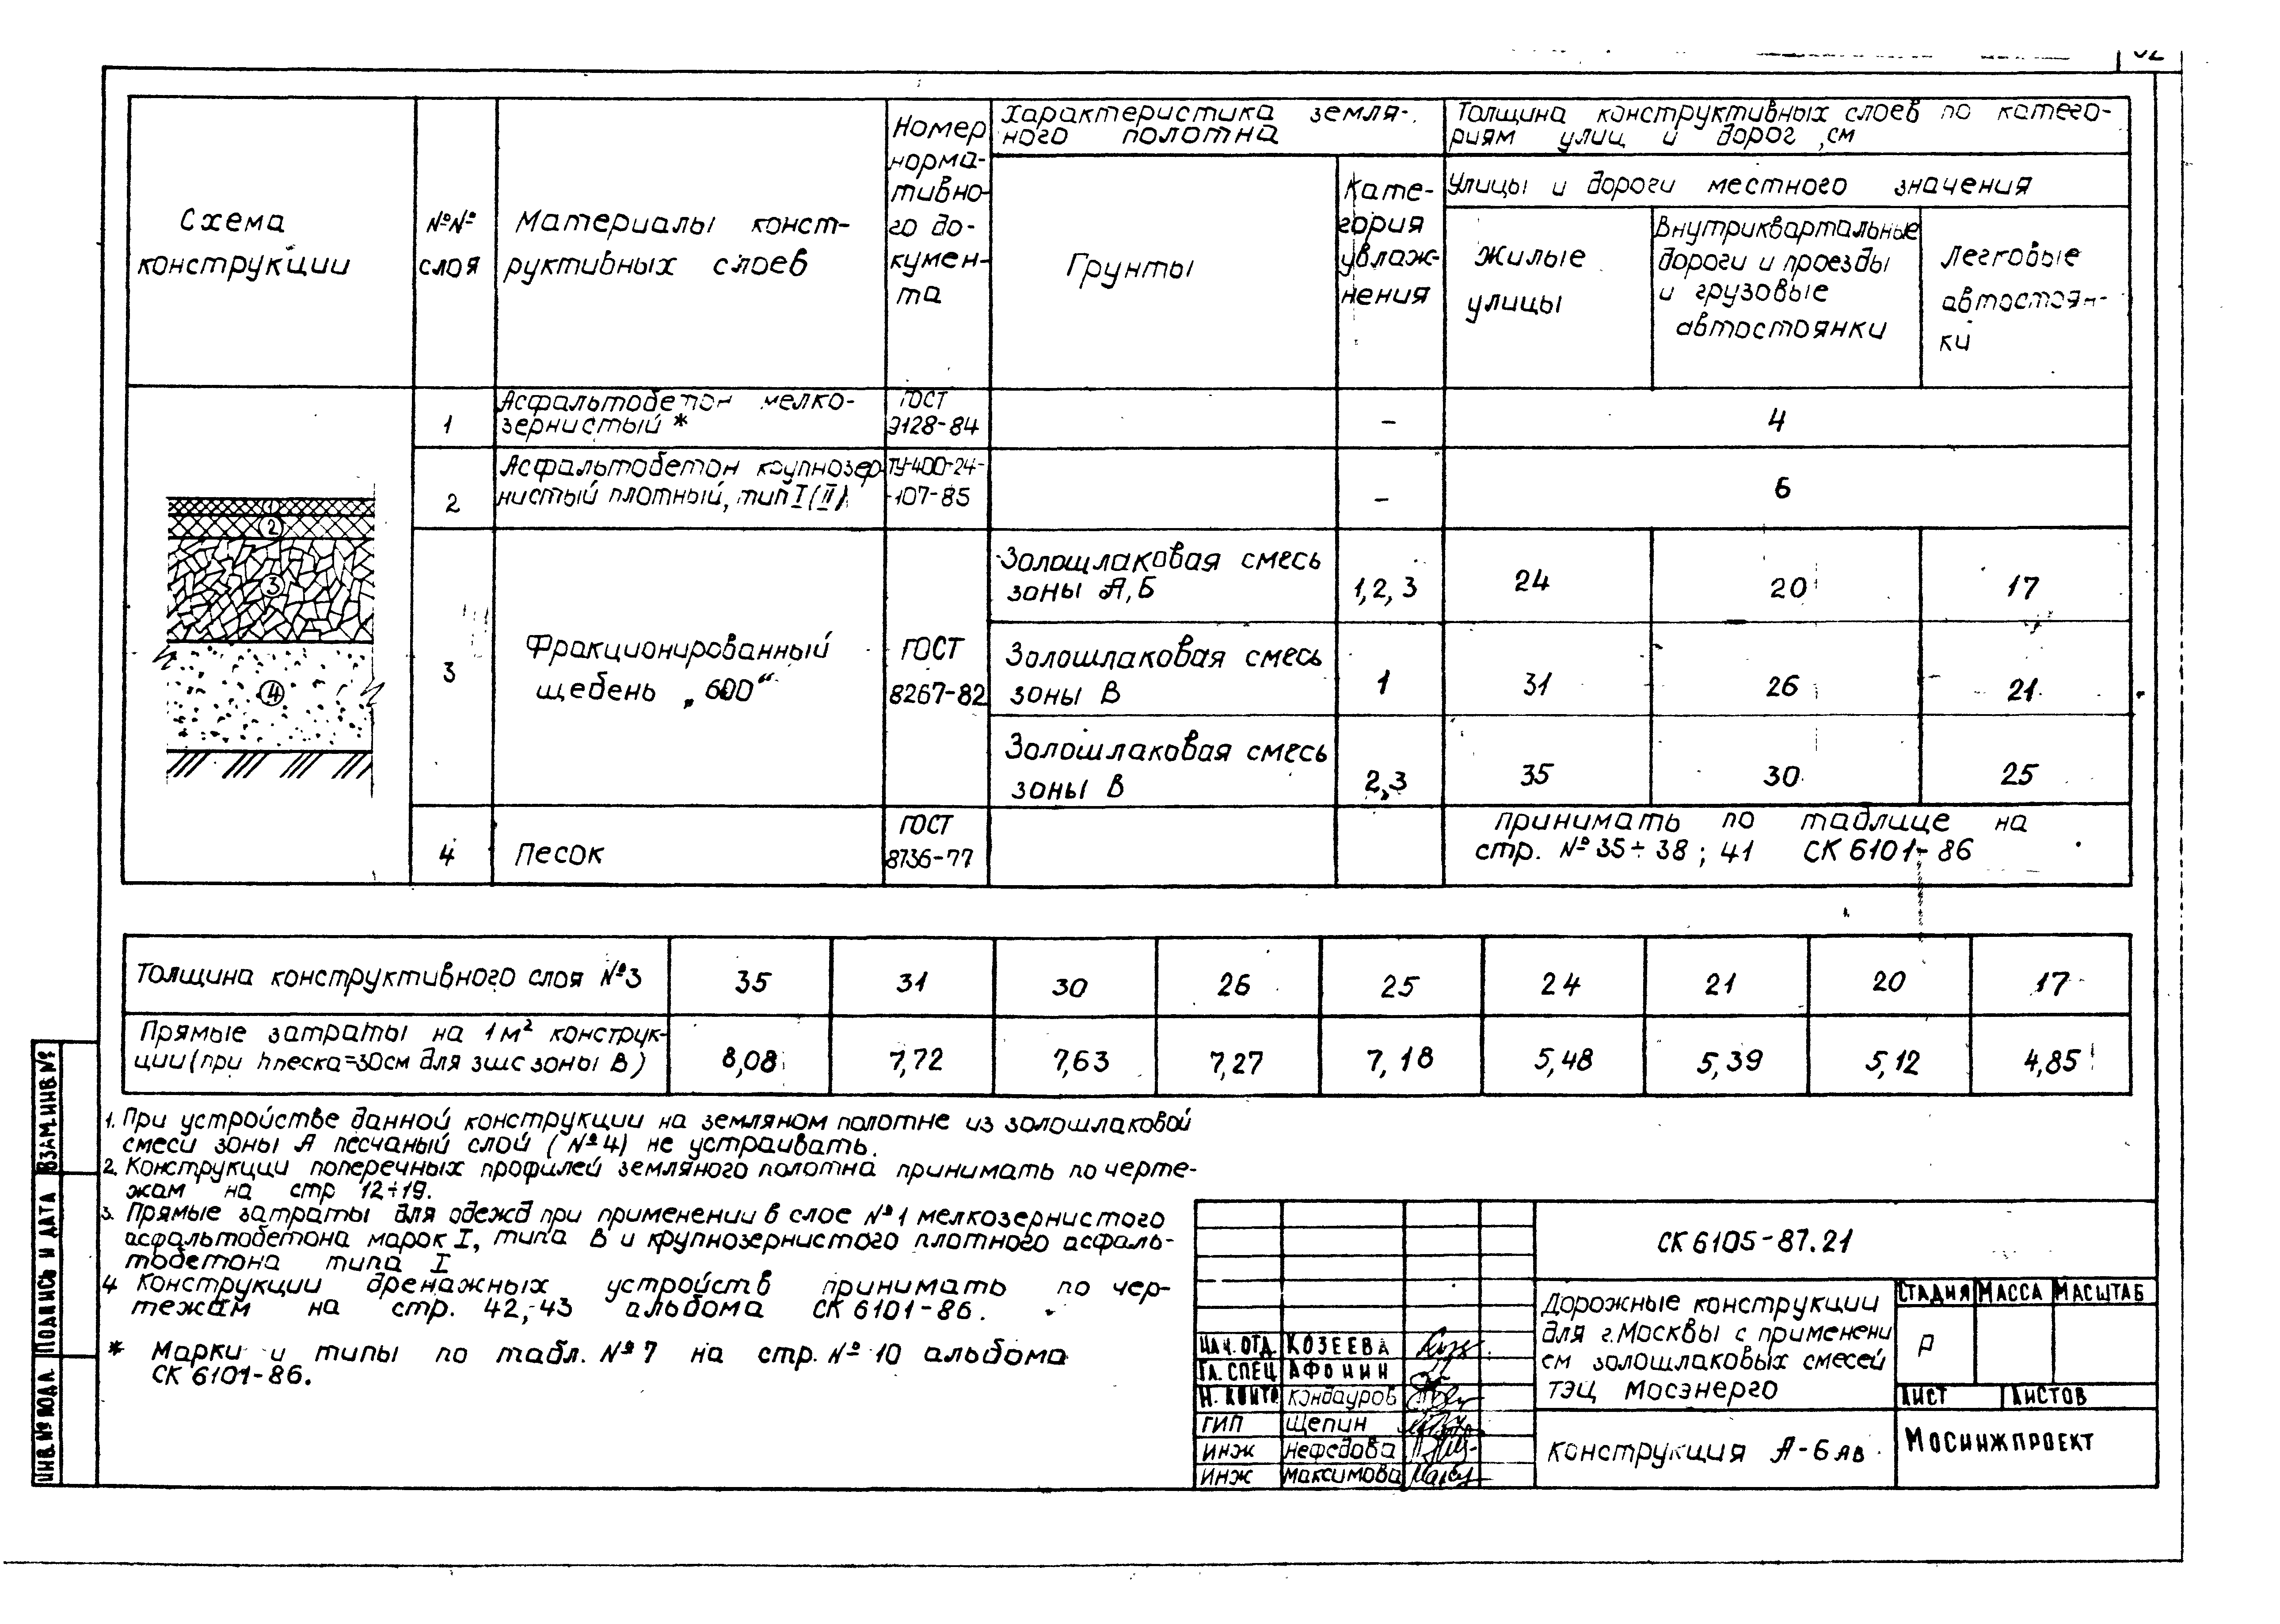 Схема
конструкции
№№
слоя
Материалы конст-
руктивных слоев
Номер
норма-
тивно-
го до-
кумен-
та
Характеристика земля-
ного полотна
Грунты
Кате-
гория
увлаж-
нения
Толщина конструктивных слоев по катего-
риям улиц и дорог, см
Улицы и дороги местного значения
Жилые
улицы
Внутриквартальные
дороги и проезды
и грузовые
автостоянки
Легковые
автостоян-
ки
1
Асфальтобетон мелко-
зернистый *
ГОСТ
9128-84
-
4
2
Асфальтобетон крупнозер
нистый плотный, тип I (II)
ТУ-400-24-
-107-85
-
6
1
2
3
4
3
Фракционированный
щебень „600“
ГОСТ
8267-82
Золошлаковая смесь
зоны А,Б
1,2,3
24
20
17
Золошлаковая смесь
зоны В
1
31
26
21
Золошлаковая смесь
зоны В
2,3
35
30
25
4
Песок
ГОСТ
8736-77
принимать по таблице на
стр. № 35÷38; 41 СК 6101-86
Толщина конструктивного слоя №3
35
31
30
26
25
24
21
20
17
Прямые затраты на 1м² конструк-
ции (при hпеска=30см для зшс зоны В)
8,08
7,72
7,63
7,27
7,18
5,48
5,39
5,12
4,85
1. При устройстве данной конструкции на земляном полотне из золошлаковой
смеси зоны А песчаный слой (№4) не устраивать.
2. Конструкции поперечных профилей земляного полотна принимать по черте-
жам на стр 12÷19.
3. Прямые затраты для одежд при применении в слое №1 мелкозернистого
асфальтобетона марок I, типа В и крупнозернистого плотного асфаль-
тобетона типа I
4 Конструкции дренажных устройств принимать по чер-
тежам на стр. 42,43 альбома СК 6101-86.
* Марки и типы по табл. №7 на стр. № 10 альбома
СК 6101-86.
ВЗАМ. ИНВ №
ПОДПИСЬ И ДАТА
ИНВ. № ПОДЛ.
НАЧ. ОТД. КОЗЕЕВА
ГЛ. СПЕЦ АФОНИН
Н. КОНТР. Кондауров
ГИП Щепин
ИНЖ Нефедова
ИНЖ Максимова
СК 6105-87.21
Дорожные конструкции
для г.Москвы с применени
ем золошлаковых смесей
ТЭЦ Мосэнерго
СТАДИЯ МАССА МАСШТАБ
Р
ЛИСТ ЛИСТОВ
Конструкция А-6 яв
МОСИНЖПРОЕКТ